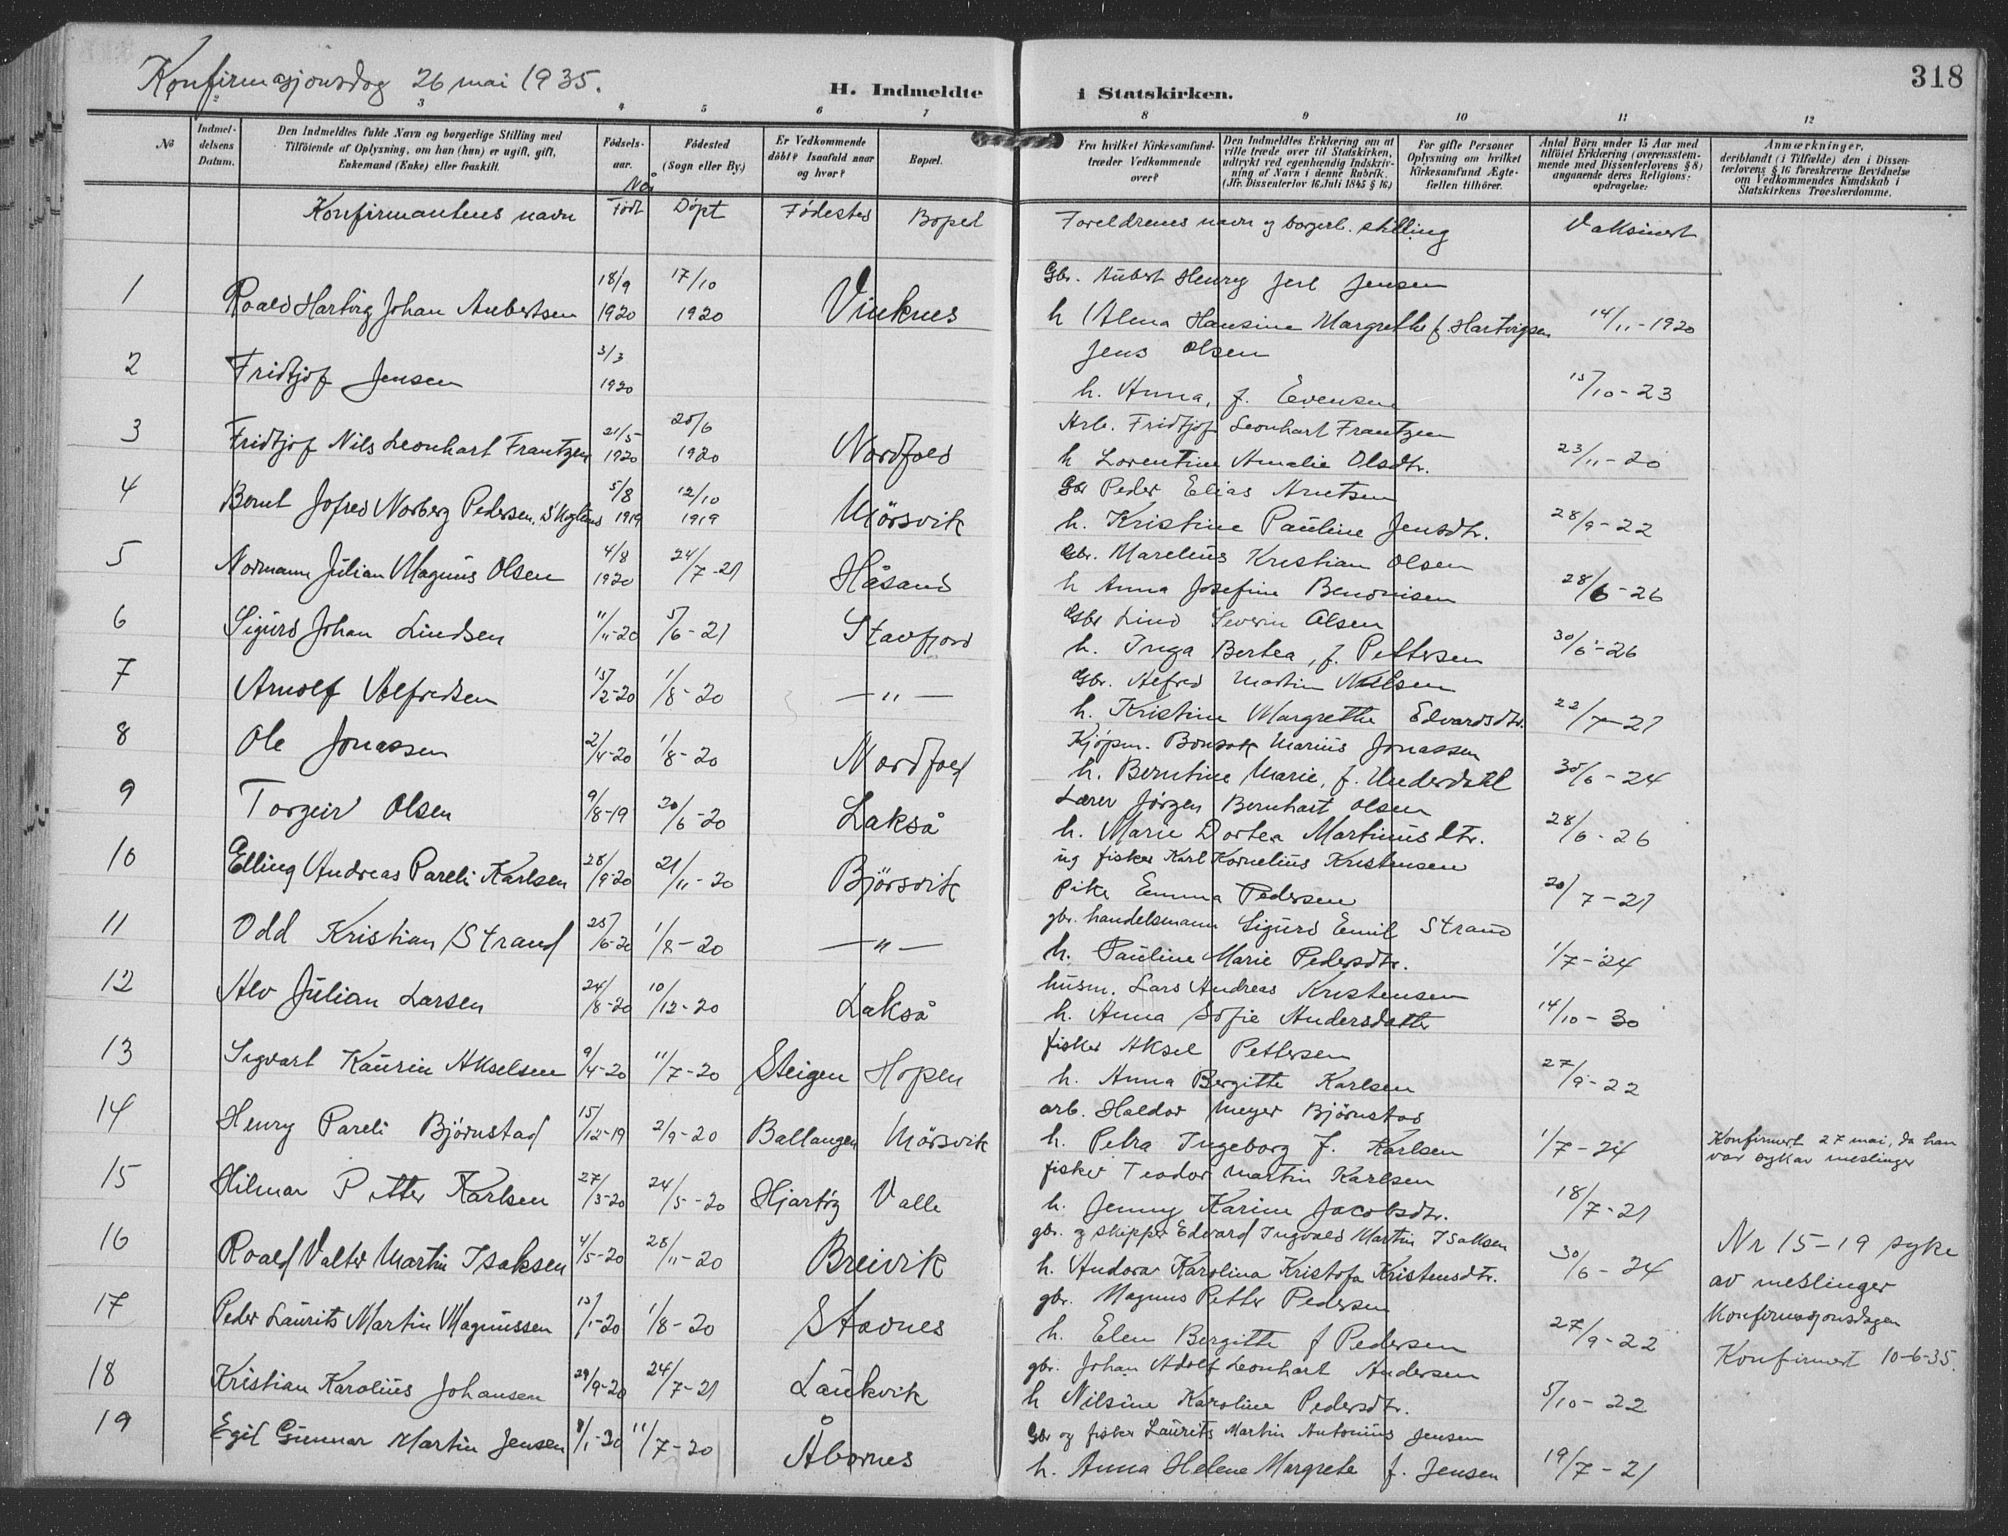 Konfirmasjonsdag 26 mai 1935.
H. Indmeldte i Statskirken.
318
2 3 4 5 6 7 8 9 10 11 12
No
Indmel-
delsens
Datum.
Den Indmeldtes fulde Navn og borgerlige Stilling med
Tilföiende af Oplysning, om han (hun) er ugift, gift,
Enkemand (Enke) eller fraskilt.
Födsels-
aar.
Födested
(Sogn eller By.)
Er Vedkommende
döbt? Isaafald naar
og hvor?
Bopæl.
Fra hvilket Kirkesamfund
træder Vedkommende
over?
Den Indmeldtes Erklæring om at
ville træde over til Statskirken,
udtrykt ved egenhændig Indskriv-
ning af Navn i denne Rubrik.
(Jfr. Dissenterlov 16 Juli 1845 § 16)
For gifte Personer
Oplysning om hvilket
Kirkesamfund Ægte-
fællen tilhörer.
Antal Börn under 15 Aar med
tilföiet Erklæring (overensstem-
mende med Dissenterlovens § 8)
angaaende deres Religions-
opdragelse:
Anmærkninger,
deriblandt (i Tilfælde) den i Dissen-
terlovens § 16 foreskrevne Bevidnelse
om Vedkommendes Kundskab i
Statskirkens Troeslærdomme.
Konfirmantens navn Når Født Döpt Fødested Bopel Foreldrenes navn og borgerl. stilling Vaksinert
1 Roald Hartvig Johan Aubertsen 18/9 1920 17/10 1920 Vinknes Gbr. Aubert Henry Jerl Jensen
h Alma Hansine Margrethe f. Hartvigsen 14/11-1920
2 Fridtjof Jensen 3/3 1920 Jens Olsen
h. Anna, f. Evensen 15/10-23
3 Fridtjof Nils Leonhart Frantzen 21/5 1920 20/6 1920 Nordfold Arb. Fridtjof Leonhart Frantzen
h Lorentine Amalie Olsdtr. 23/11-20
4 Bernt Jofred Norberg Pedersen, Skoglund 5/8 1919 12/10 1919 Mörsvik Gbr Peder Elias Arntsen
h. Kristine Pauline Jensdtr. 28/9-22
5 Normann Julian Magnus Olsen 4/8 1920 24/7-21 Håsand Gbr. Marelius Kristian Olsen
h Anna Josefine Bendrisen 28/6-26
6 Sigurd Johan Lindsen 11/11-20 5/6-21 Stavfjord Gbr Lind Severin Olsen
h. Inga Bertea, f. Pettersen 30/6-26
7 Arnolf Alfredsen 15/2-20 1/8-20 —"— Gbr. Alfred Martin Nilsen
h. Kristine Margrethe Edvardsdtr. 22/7-21
8 Ole Jonassen 2/4-20 1/8-20 Nordfold Kjöpm. Bonsak Marius Jonassen
h. Berntine Marie, f. Underdahl 30/6-24
9 Torgeir Olsen 9/8-19 20/6-20 Lakså Lærer Jörgen Bernhart Olsen
h. Marie Dortea Martinusdtr. 28/6-26
10 Elling Andreas Pareli Karlsen 28/9-20 21/11-20 Björsvik ug fisker Karl Kornelius Kristensen
pike Emma Pedersen 20/7-21
11 Odd Kristian Strand 25/6-20 1/8-20 —"— gbr. handelsmann Sigurd Emil Strand
h. Pauline Marie Pedersdtr. 1/7-24
12 Alv Julian Larsen 24/8-20 10/12-20 Lakså husm. Lars Andreas Kristensen
h. Anna Sofie Andersdatter 14/10-30
13 Sigvart Kaurin Akselsen 9/4-20 11/7-20 Steigen Hopen fisker Aksel Pettersen
h. Anna Bergitte Karlsen 27/9-22
14 Henry Pareli Björnstad 15/12-19 2/9-20 Ballangen Mörsvik arb. Haldor Meyer Björnstad
h. Petra Ingeborg f. Karlsen 1/7-24 Konfirmert 27 mai, da han
var syk av meslinger
15 Hilmar Petter Karlsen 27/3-20 24/5-20 Hjartöy Valle fisker Teodor Martin Karlsen
h. Jenny Karine Jacobsdtr. 18/7-21
16 Roald Valter Martin Isaksen 4/5-20 28/11-20 Breivik gbr. og skipper Edvard Ingvald Martin Isaksen
h. Andora Karolina Kristofa Kristensdtr. 30/6-24 Nr 15-19 syke
av meslinger
17 Peder Laurits Martin Magnussen 15/1-20 1/8-20 Stavnes gbr. Magnus Petter Pedersen
h. Elen Bergitte f Pedersen 27/9-22 Konfirmasjonsdagen
Konfirmert 10-6-35.
18 Kristian Karolius Johansen 29/9-20 24/7-21 Laukvik gbr. Johan Adolf Leonhart Andersen
h Nilsine Karoline Pedersdtr. 5/10-22
19 Egil Gunnar Martin Jensen 8/1-20 11/7-20 Åbornes Gbr og fisker Laurits Martin Antonius Jensen
h. Anna Helene Margrete f. Jensen 19/7-21